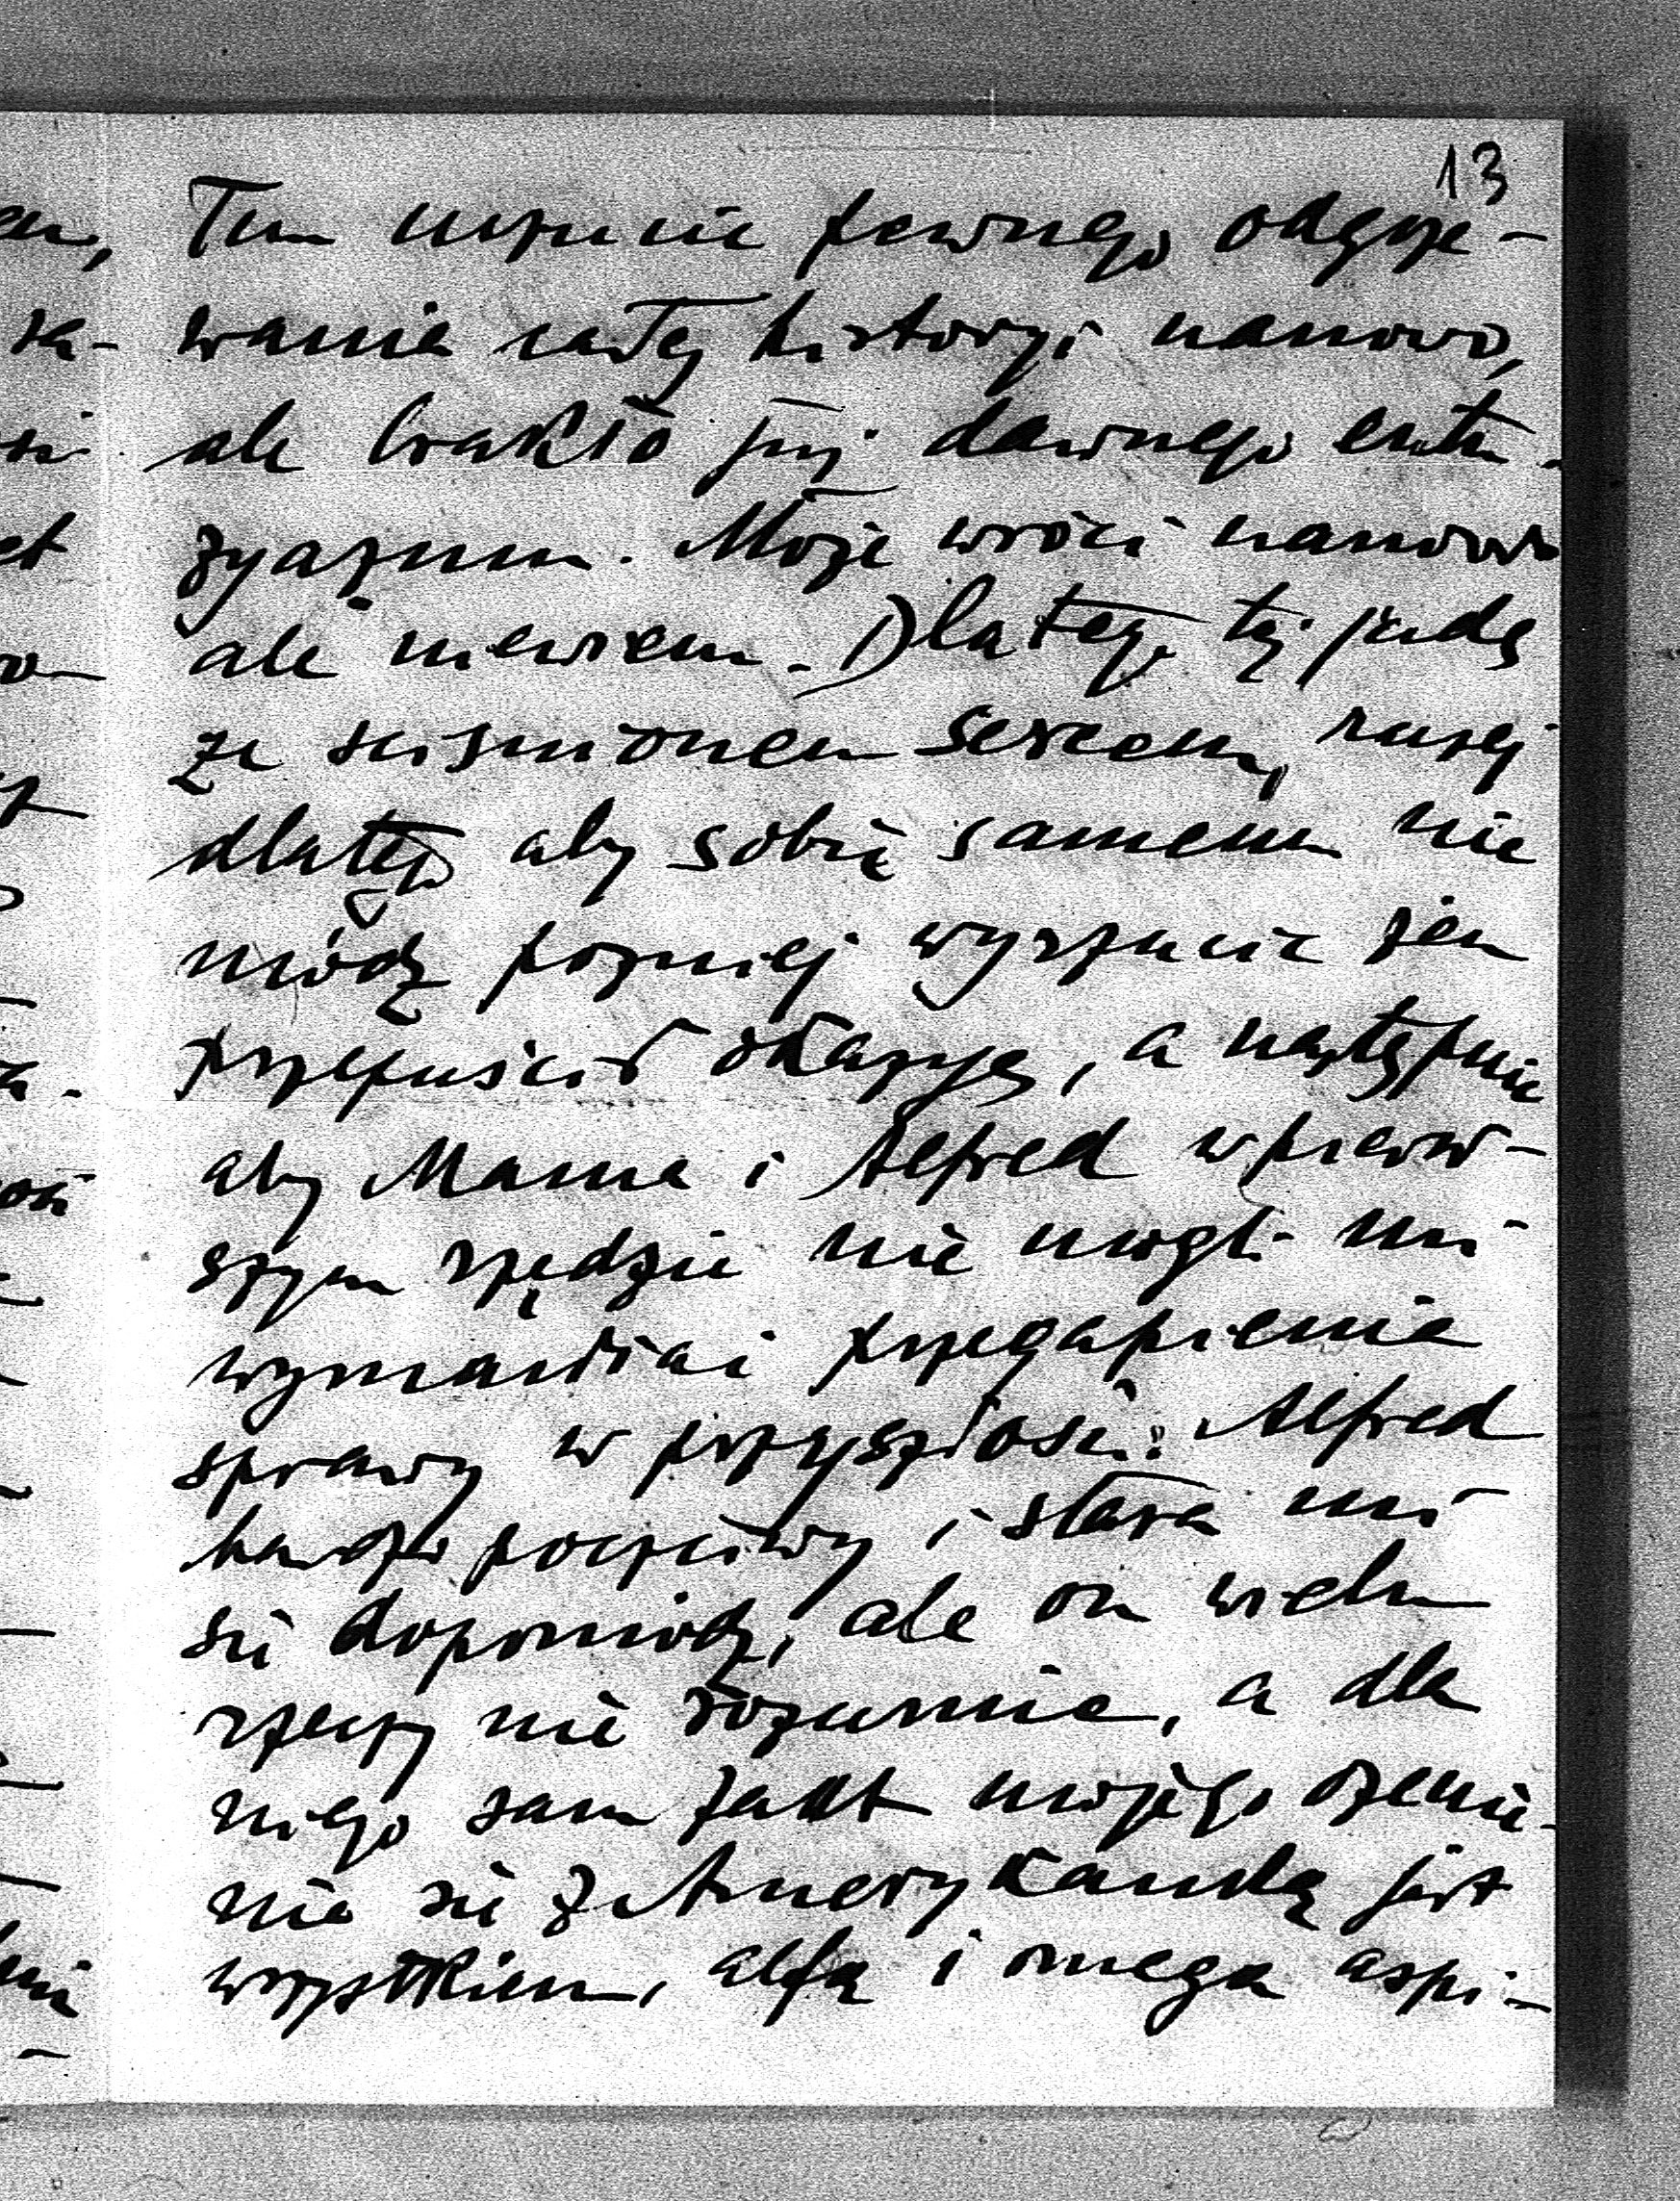 13
Tem uczucie pewnego odgrze-
wania całej historyi nanowo,
ale brakło jej dawnego entu-
zyazmu. Może wróci nanowo
ale niewiem. Dlatego też jadę
ze ściśnionem sercem, raczej
dlatego aby sobie samemu nie
módz pozniej wyrzucić żem
przepuścił okazyę, a następnie
aby Mama i Alfred w pierw-
szym rzędzie nie mogli mi
wymawiać przegapienia
sprawy w przyszłości. Alfred
bardzo poczciwy i stara mi
się dopomódz, ale on wielu
rzeczy nie rozumie, a dla
niego sam fakt mojego ożenie-
nia się z Amerykanką jest
wszystkiem, alfą i omegą aspi-